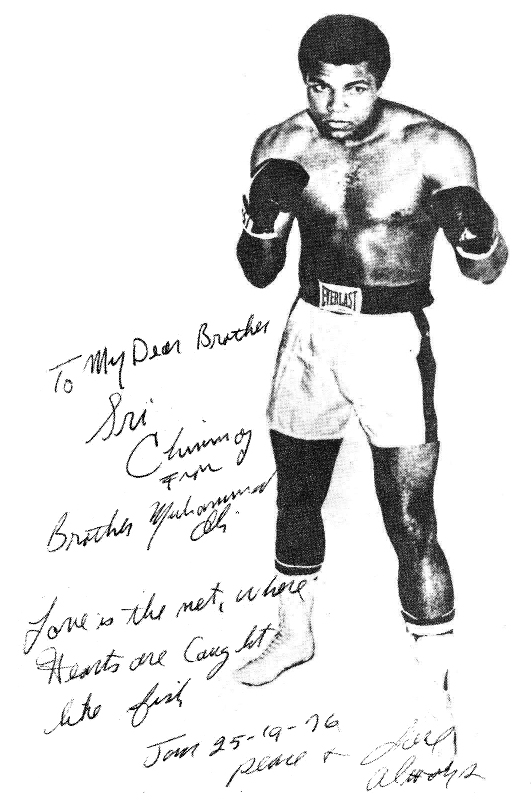 EVERLAST
To My Dear Brother
Sri
Chinmoy
From
Brother Muhammad
Ali
Love is the net, where
Hearts are Caught
like fish
Jan 25-19-76
peace & Love
Always